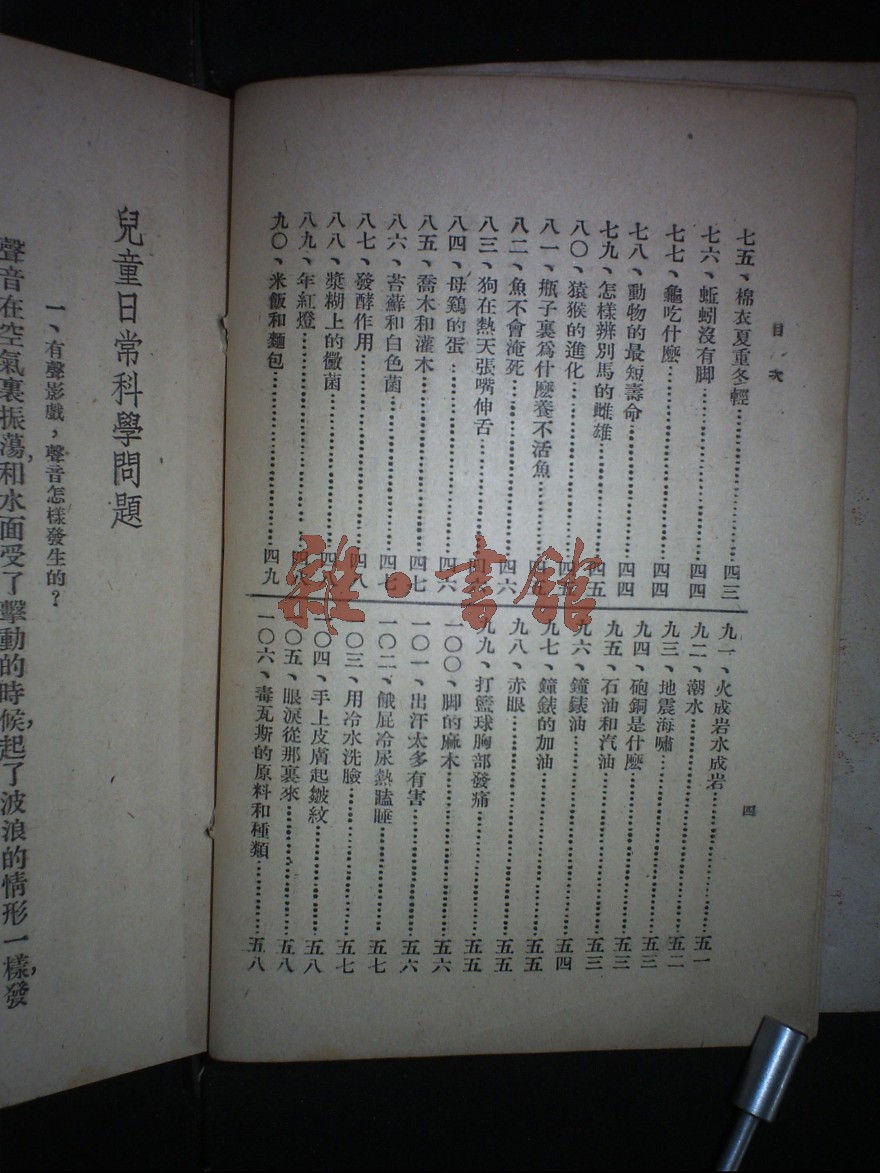 目次
七五、棉衣夏重冬輕…………四三
七六、蚯蚓沒有脚…………四四
七七、龜吃什麽…………四四
七八、動物的最短壽命…………四四
七九、怎樣辨別馬的雌雄…………四五
八〇、猿猴的進化…………四五
八一、瓶子裏爲什麽養不活魚
八二、魚不會淹死…………四六
八三、狗在熱天張嘴伸舌…………四六
八四、母鷄的蛋…………四六
八五、喬木和灌木…………四七
八六、苔蘚和白色菌…………四七
八七、發酵作用…………四八
八八、漿糊上的黴菌…………四八
八九、年紅燈…………四八
九〇、米飯和麵包…………四九
九一、火成岩水成岩…………五一
九二、潮水…………五二
九三、地震海嘯…………五三
九四、砲銅是什麽…………五三
九五、石油和汽油…………五三
九六、鐘錶油…………五四
九七、鐘錶的加油…………五五
九八、赤眼…………五五
九九、打籃球胸部發痛…………五五
一〇〇、脚的麻木…………五六
一〇一、出汗太多有害…………五六
一〇二、餓屁冷尿熱瞌睡…………五七
一〇三、用冷水洗臉…………五七
一〇四、手上皮膚起皺紋…………五八
一〇五、眼淚從那裏來…………五八
一〇六、毒瓦斯的原料和種類…………五八
四
兒童日常科學問題
一、有聲影戲，聲音怎樣發生的？
聲音在空氣裏振蕩，和水面受了擊動的時候，起了波浪的情形一樣，發
雜·書館